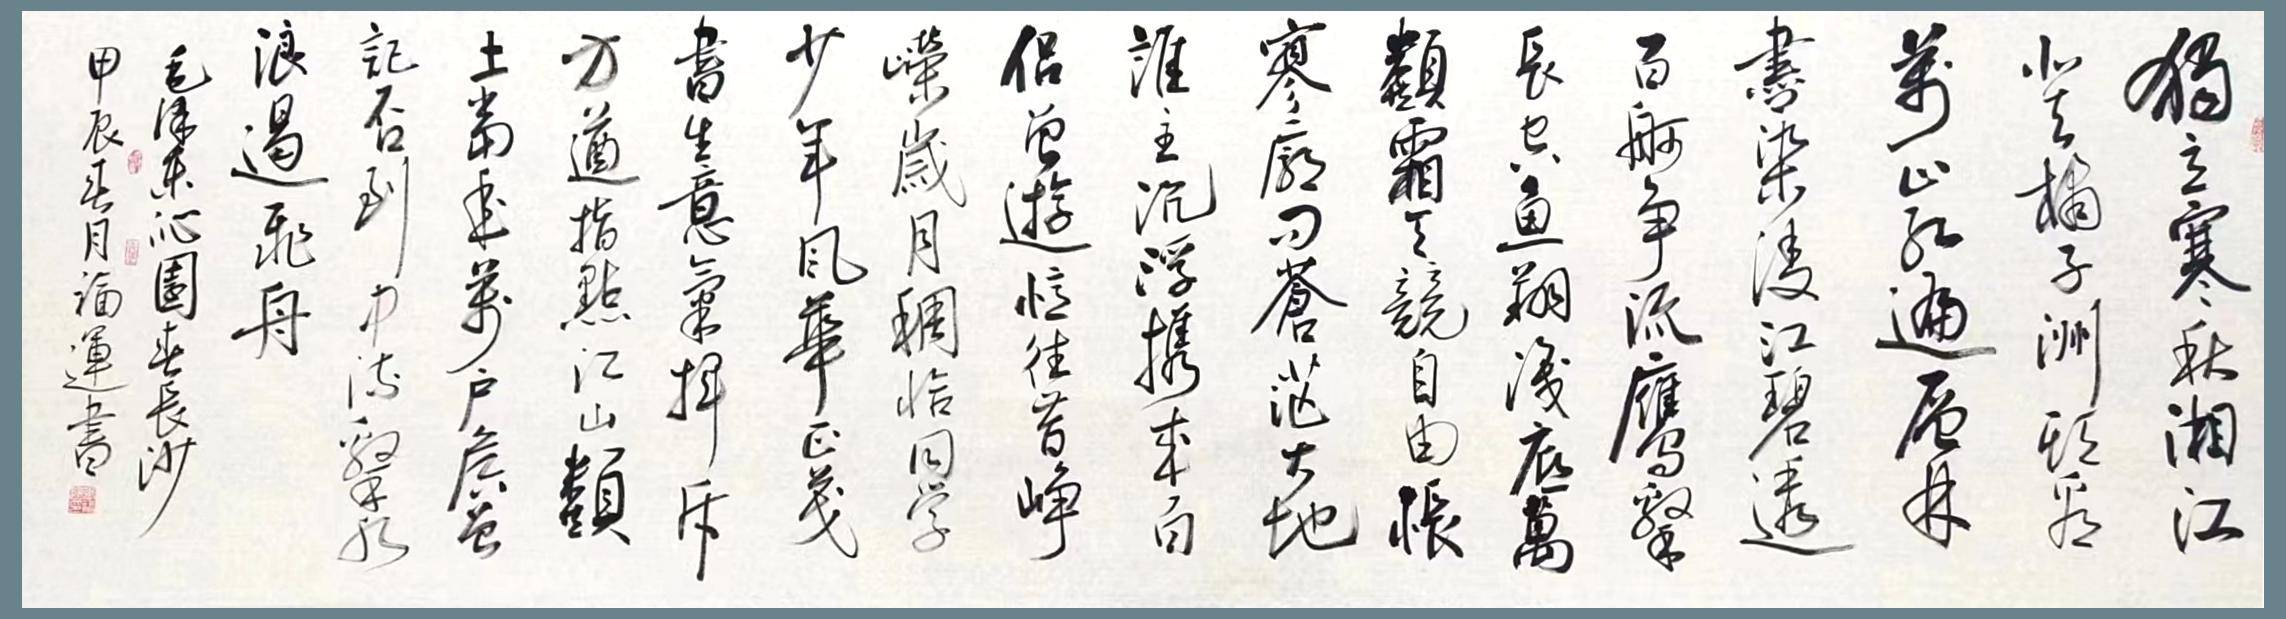 獨立寒秋湘江
北去橘子洲頭看
萬山紅遍層林
盡染漫江碧透
百舸争流鷹擊
長空魚翔淺底萬
類霜天競自由悵
寥廓問蒼茫大地
誰主沉浮攜来百
侣曾遊憶往昔崢
嶸歲月稠恰同学
少年風華正茂
書生意氣揮斥
方遒指點江山類
土當年萬户侯曾
記否到中流擊水
浪遏飛舟
毛澤東沁園春長沙
甲辰春月福運書